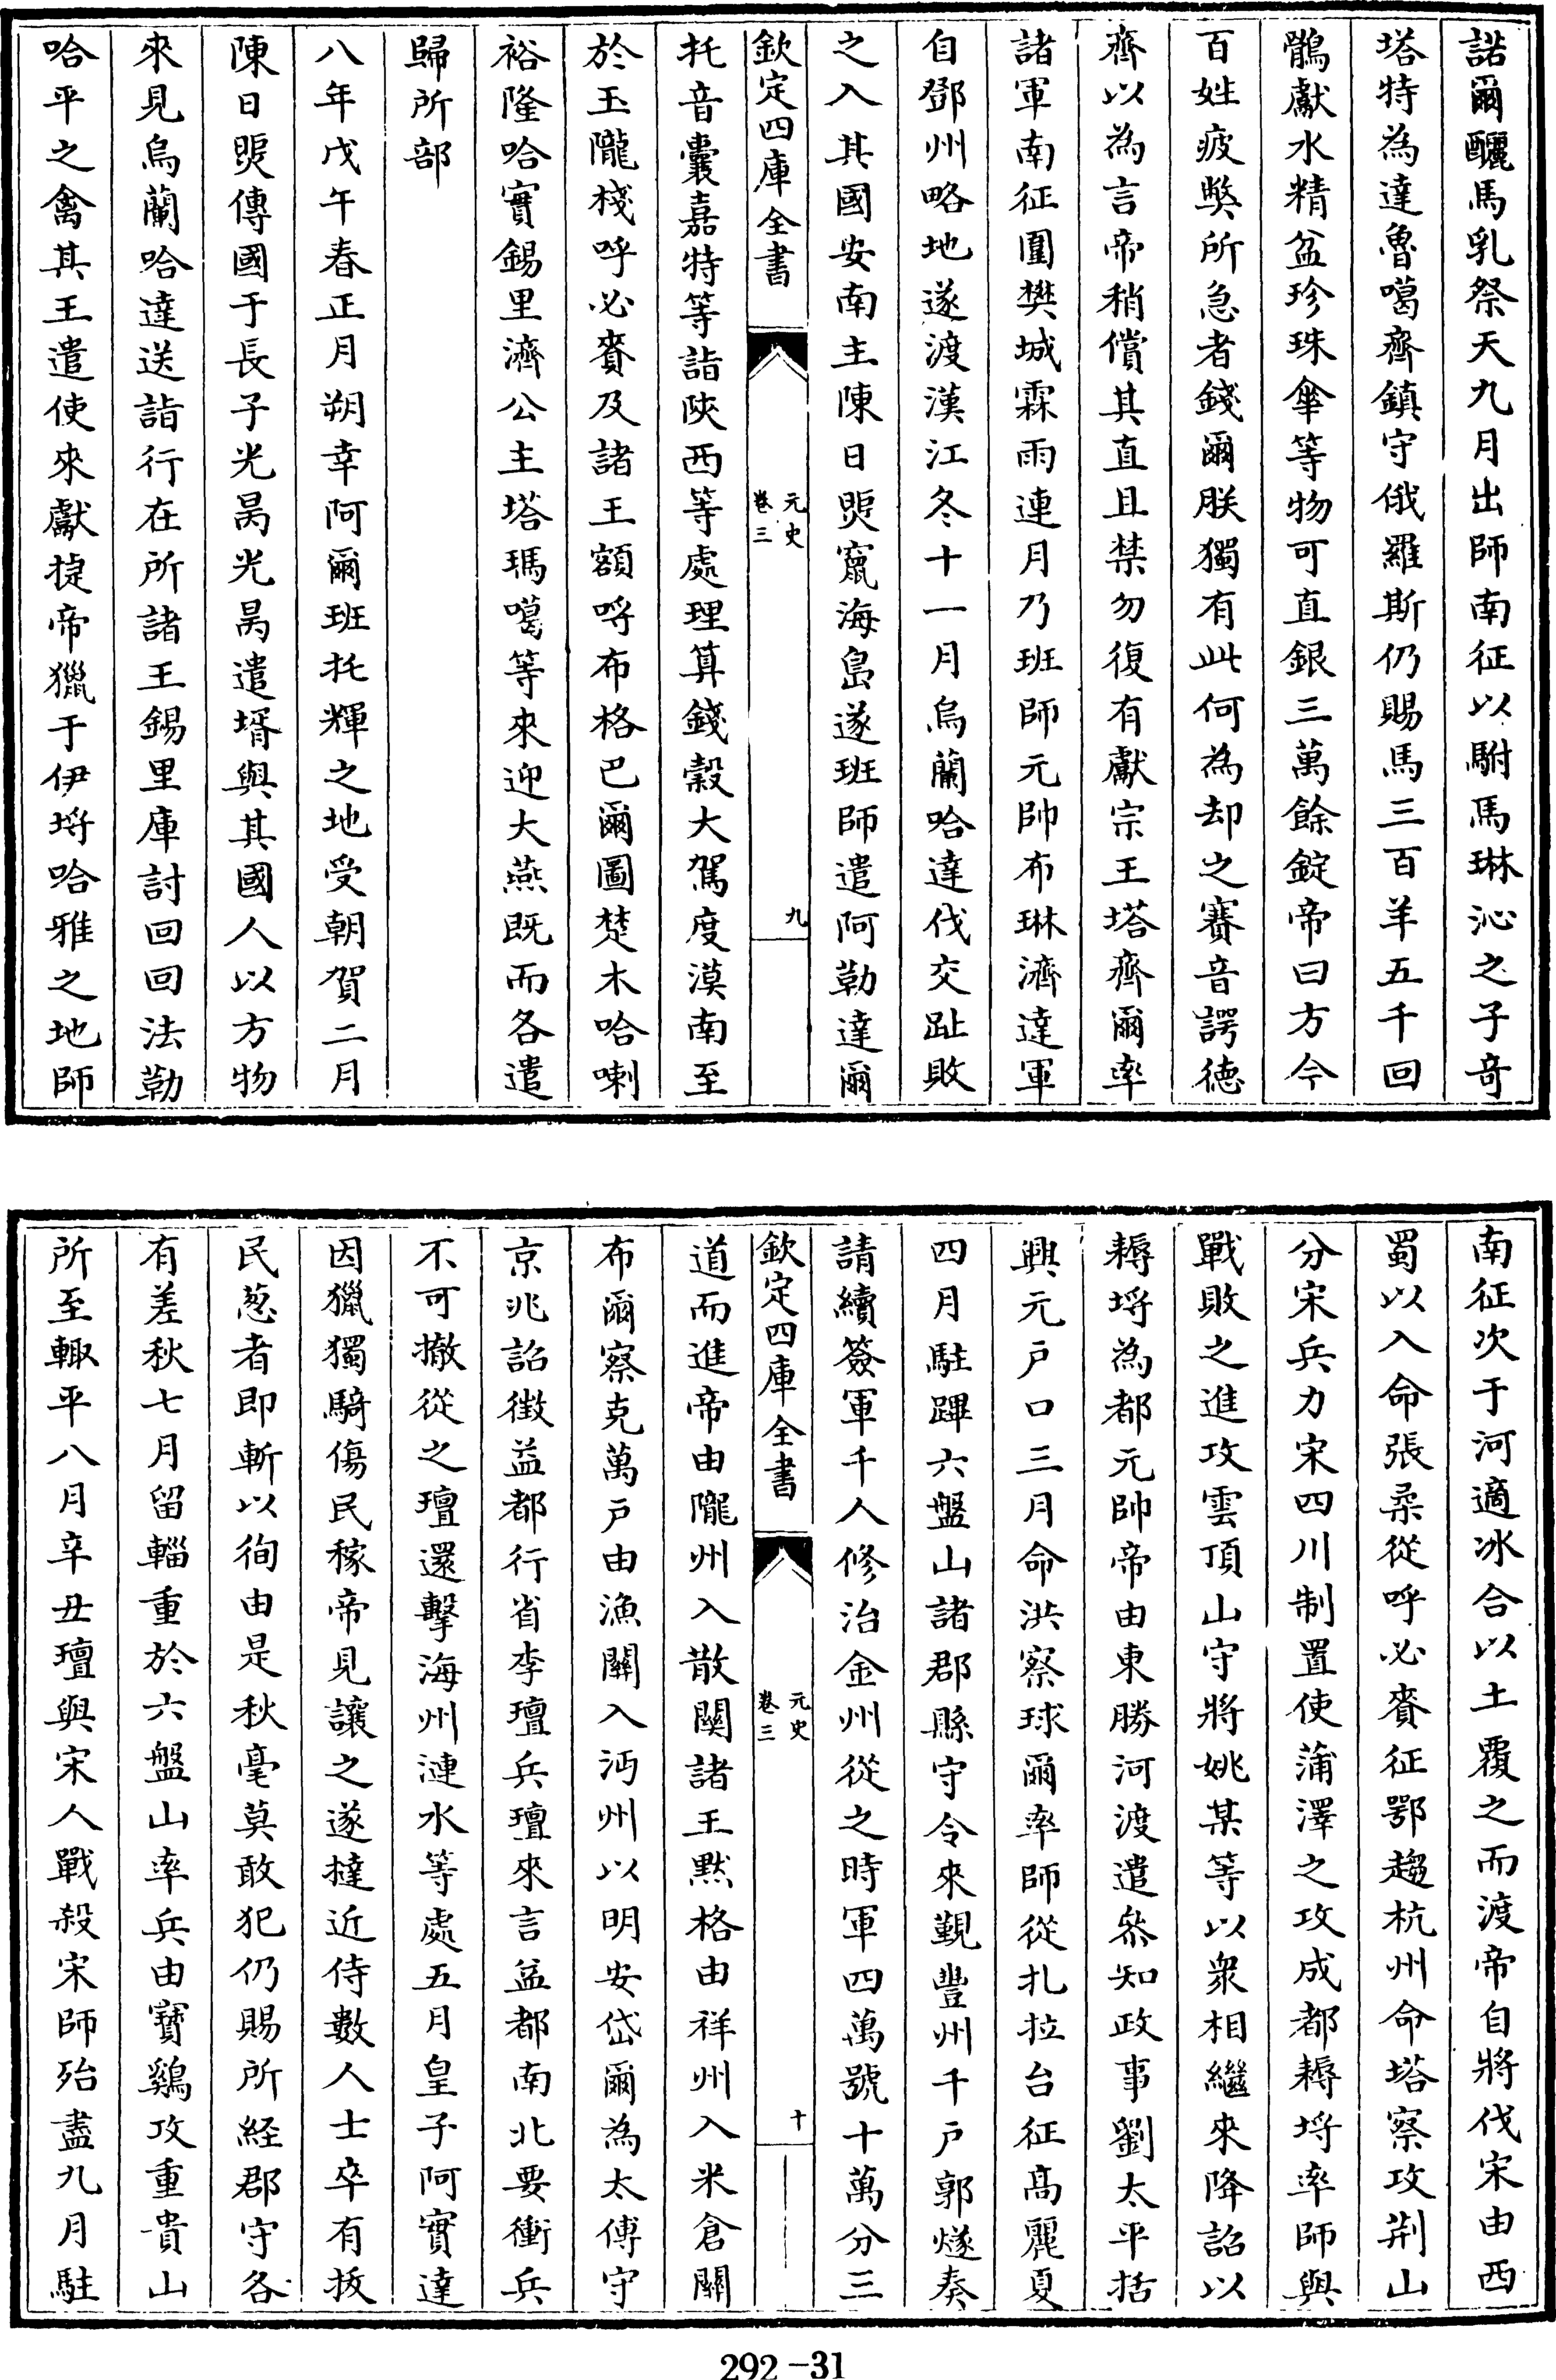 諾爾釃馬乳祭天九月出師南征以駙馬琳沁之子竒
塔特為達魯噶齊鎮守俄羅斯仍賜馬三百羊五千回
鶻獻水精盆珍珠傘等物可直銀三萬餘錠帝曰方今
百姓疲弊所急者錢爾朕獨有此何為却之賽音諤徳
齊以為言帝稍償其直且禁勿復有獻宗王塔齊爾率
諸軍南征圍樊城霖雨連月乃班師元帥布琳濟達軍
自鄧州略地遂渡漢江冬十一月烏蘭哈達伐交趾敗
之入其國安南主陳日煚竄海島遂班師遣阿勒達爾
欽定四庫全書
元史
卷三
九
托音囊嘉特等詣陜西等處理算錢糓大駕度漠南至
於玉隴棧呼必賚及諸王額呼布格巴爾圖楚木哈喇
裕隆哈實錫里濟公主塔瑪噶等來迎大燕既而各遣
歸所部
八年戊午春正月朔幸阿爾班托輝之地受朝賀二月
陳日煚傳國于長子光昺光昺遣壻與其國人以方物
來見烏蘭哈達送詣行在所諸王錫里庫討回回法勒
哈平之禽其王遣使來獻捷帝獵于伊埒哈雅之地師
南征次于河適冰合以土覆之而渡帝自將伐宋由西
蜀以入命張柔從呼必賚征鄂趨杭州命塔察攻荆山
分宋兵力宋四川制置使蒲澤之攻成都耨埒率師與
戰敗之進攻雲頂山守將姚某等以衆相繼來降詔以
耨埒為都元帥帝由東勝河渡遣叅知政事劉太平括
興元户口三月命洪察球爾率師從扎拉台征髙麗夏
四月駐蹕六盤山諸郡縣守令來覲豐州千户郭燧奏
請續簽軍千人修治金州從之時軍四萬號十萬分三
欽定四庫全書
元史
卷三
十
道而進帝由隴州入散闗諸王黙格由祥州入米倉關
布爾察克萬户由漁關入沔州以明安岱爾為太傅守
京兆詔徴益都行省李璮兵璮來言益都南北要衝兵
不可撤從之璮還擊海州漣水等處五月皇子阿實達
因獵獨騎傷民稼帝見讓之遂撻近侍數人士卒有拔
民葱者即斬以徇由是秋毫莫敢犯仍賜所經郡守各
有差秋七月留輜重於六盤山率兵由寳鷄攻重貴山
所至輙平八月辛丑璮與宋人戰殺宋師殆盡九月駐
292-31